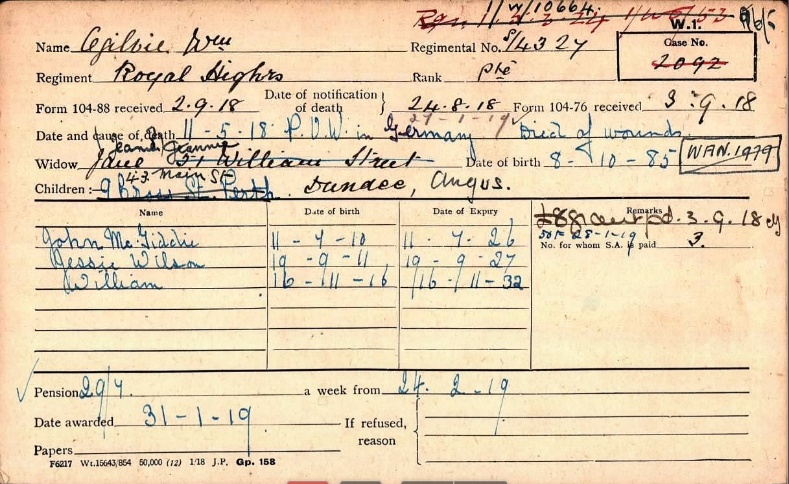 11/W/10664.
W.1.
Name Ogilvie Wm Regimental No. S/4327 Case No. 2092
Regiment Royal Highrs Rank Pte
Form 104-88 received 2.9.18 Date of notification of death } 24.8.18 Form 104-76 received 3.9.18
29-1-19
Date and cause of death 11-5-18 P.O.W. in Germany Died of wounds
Jeannie
Widow Jane 51 William Street Date of birth 8-10-85 WAN.1979
43 Main St
Children: 9 Cross St. Perth. Dundee, Angus.
Name Date of birth Date of Expiry Remarks
£8 grant pd. 3.9.18
John McGiddie 11-7-10 11.7.26 28-1-19
No. for whom S.A. is paid 3.
Jessie Wilson 19-9-11 19-9-27
William 16-11-16 16-11-32
Pension 29/7 a week from 24.2.19
Date awarded 31-1-19 If refused, reason
Papers
F6217 Wt.15643/854 50,000 (12) 1/18 J.P. Gp. 158